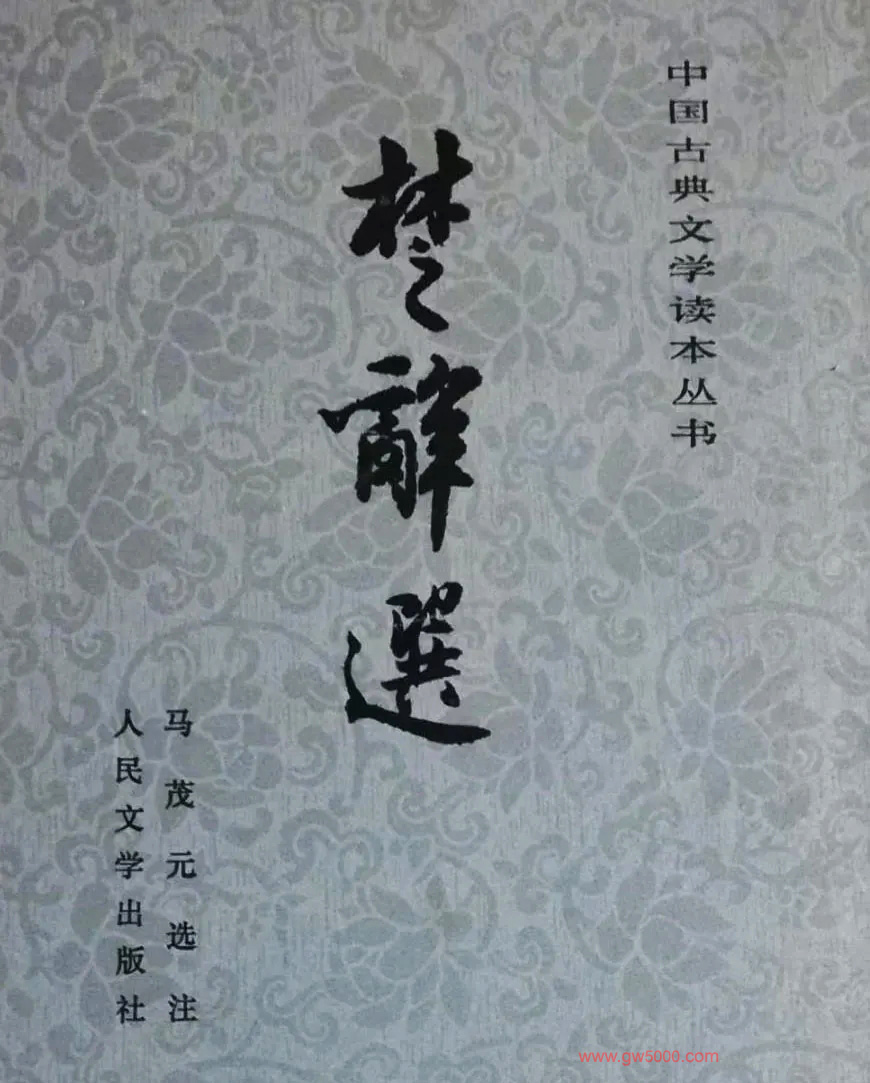 中国古典文学读本丛书
楚辞選
马茂元选注
人民文学出版社
www.gw5000.com